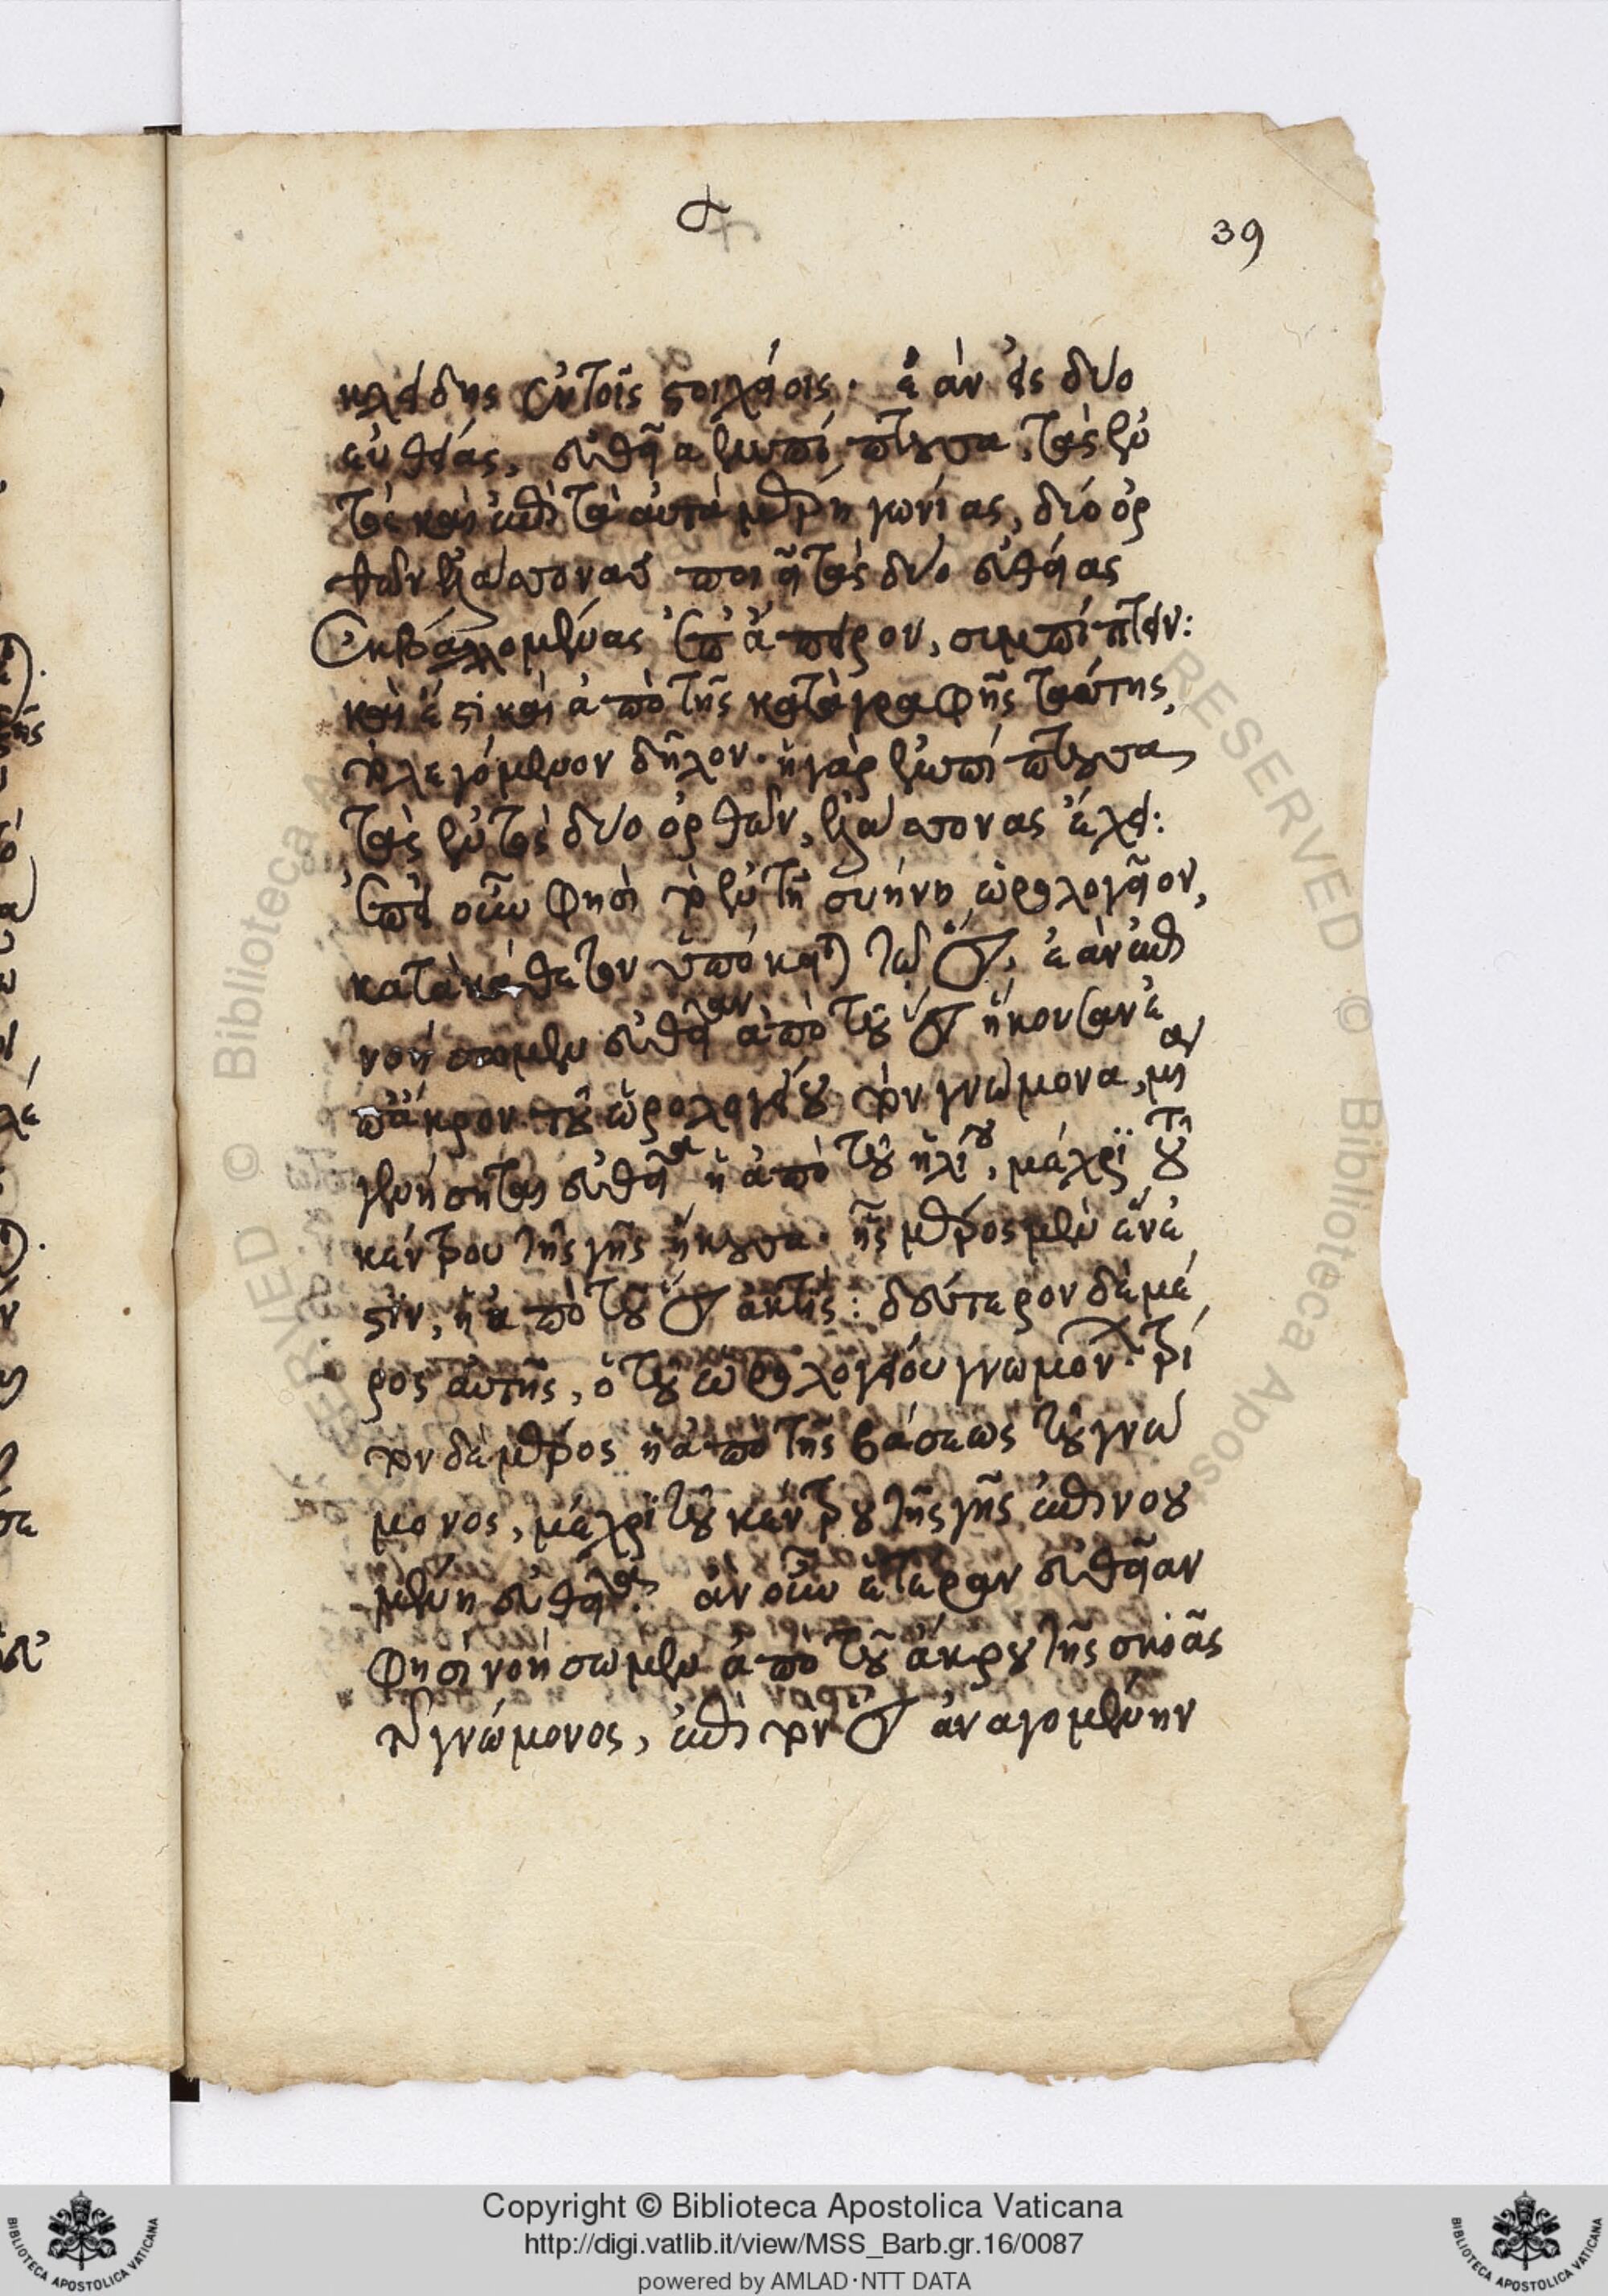 39
κλείδης ἐν τοῖς στοιχείοις· ἐὰν εἰς δυο
εὐθείας, εὐθεῖα ἐμπίπτουσα, τὰς ἐν
τὸς καὶ ἐπὶ τὰ αὐτὰ μέρη γωνίας, δύο ὀρ
θῶν ἐλάσσονας ποιῇ τὰς δυο εὐθείας
ἐκβαλλομένας ἐπ' ἄπειρον, συμπίπτειν:
καὶ ἔστι καὶ ἀπὸ τῆς καταγραφῆς ταύτης,
τὸ λεγόμενον δῆλον· ἡ γὰρ ἐμπίπτουσα
τὰς ἐντὸς δυο ὀρθῶν, ἐλάσσονας ἔχει:
ἐπεὶ οὖν φησὶ τὸ ἐν τῇ συήνῃ ὡρολογεῖον,
κατὰ κάθετον ὑπόκειται τῷ ☉, ἐὰν ἐπι
νοήσωμεν εὐθεῖαν ἀπὸ τοῦ ☉ ἥκουσαν ἐ
π' ἄκρον τοῦ ὡρολογείου τὸν γνώμονα, μία
γενήσεται εὐθεῖα ἡ ἀπὸ τοῦ ἡλίου, μέχρϊ τοῦ
κέντρου τῆς γῆς ἥκουσα· ἧς μέρος μὲν ἕν ἐ
στϊν, ἡ ἀπὸ τοῦ ☉ ἀκτίς: δεύτερον δὲ μέ
ρος αὐτῆς, ὁ τοῦ ὡρολογείου γνώμον· τρί
τον δὲ μέρος ἡ ἀπὸ τῆς βάσεως τοῦ γνώ
μονος, μέχρϊ τοῦ κέντρου τῆς γῆς ἐπινοου
μένη εὐθεῖα: ἂν οὖν ἑτέραν εὐθεῖαν
φησὶ νοήσωμεν ἀπὸ τοῦ ἄκρου τῆς σκιᾶς
τοῦ γνώμονος, ἐπὶ τὸν ☉ ἀναγομένην
Copyright © Biblioteca Apostolica Vaticana
http://digi.vatlib.it/view/MSS_Barb.gr.16/0087
powered by AMLAD·NTT DATA